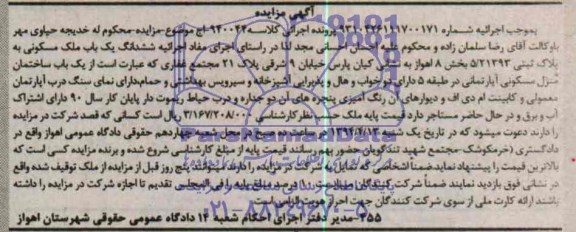 آگهی مزایده
بموجب اجرائیه شماره ۹۳۱۰۴۲۶۱۱۱۷۰۰۱۷۱ پرونده اجرائی کلاسه ۹۴۰۰۴۴-اج موضوع-مزایده-محکوم له خدیجه حیاوی مهر
باوکالت آقای رضا سلمان زاده و محکوم علیه احسان احسانی مجد لذا در راستای اجرای مفاد اجرائیه ششدانگ یک باب ملک مسکونی به
پلاک ثبتی ۵/۲۱۳۹۳ بخش ۸ اهواز به نشانی کیان پارس خیابان ۹ شرقی پلاک ۲۱ مجتمع غفاری که عبارت است از یک باب ساختمان
منزل مسکونی آپارتمانی در طبقه ۵ دارای دو خواب و هال و پذیرایی آشپزخانه و سرویس بهداشتی و حمام دارای نمای سنگ درب آپارتمان
معمولی و کابینت ام دی اف و دیوارهای آن رنگ آمیزی پنجره های آن دو جداره و درب حیاط ریموت دار پایان کار سال ۹۰ دارای اشتراک
آب و برق و در حال حاضر مستاجر دارد قیمت پایه ملک حسب نظر کارشناسی ۳/۱۶۷/۲۰۸/۰۰۰ ریال است کسانی که قصد شرکت در مزایده
را دارند دعوت میشود که در تاریخ یک شنبه ساعت صبح در محل شعبه چهاردهم حقوقی دادگاه عمومی اهواز واقع در
دادگستری (خرمکوشک-مجتمع شهید تندگویان حضور بهم رسانند قیمت پایه از مبلغ کارشناسی شروع شده و برنده مزایده کسی است که
بالاترین قیمت را پیشنهاد نماید ضمنا اشخاصی که تمایل به شرکت در مزایده را دارند میتوانند پنج روز قبل از مزایده از ملک توقیف شده واقع
در نشانی فوق بازدید نمایند ضمنا شرکت کنندگان درصد مبلغ پایه را فی المجلس تقدیم تا اجازه شرکت در مزایده را داشته
باشند ارائه کارت ملی از سوی شرکت کنندگان جهت احراز هویت الزامی است
۲۵۵-مدیر دفتر اجرای احکام شعبه ۱۴ دادگاه عمومی حقوقی شهرستان اهواز
۰۲۱-۸۸۳۴۹۶۷۰-۵